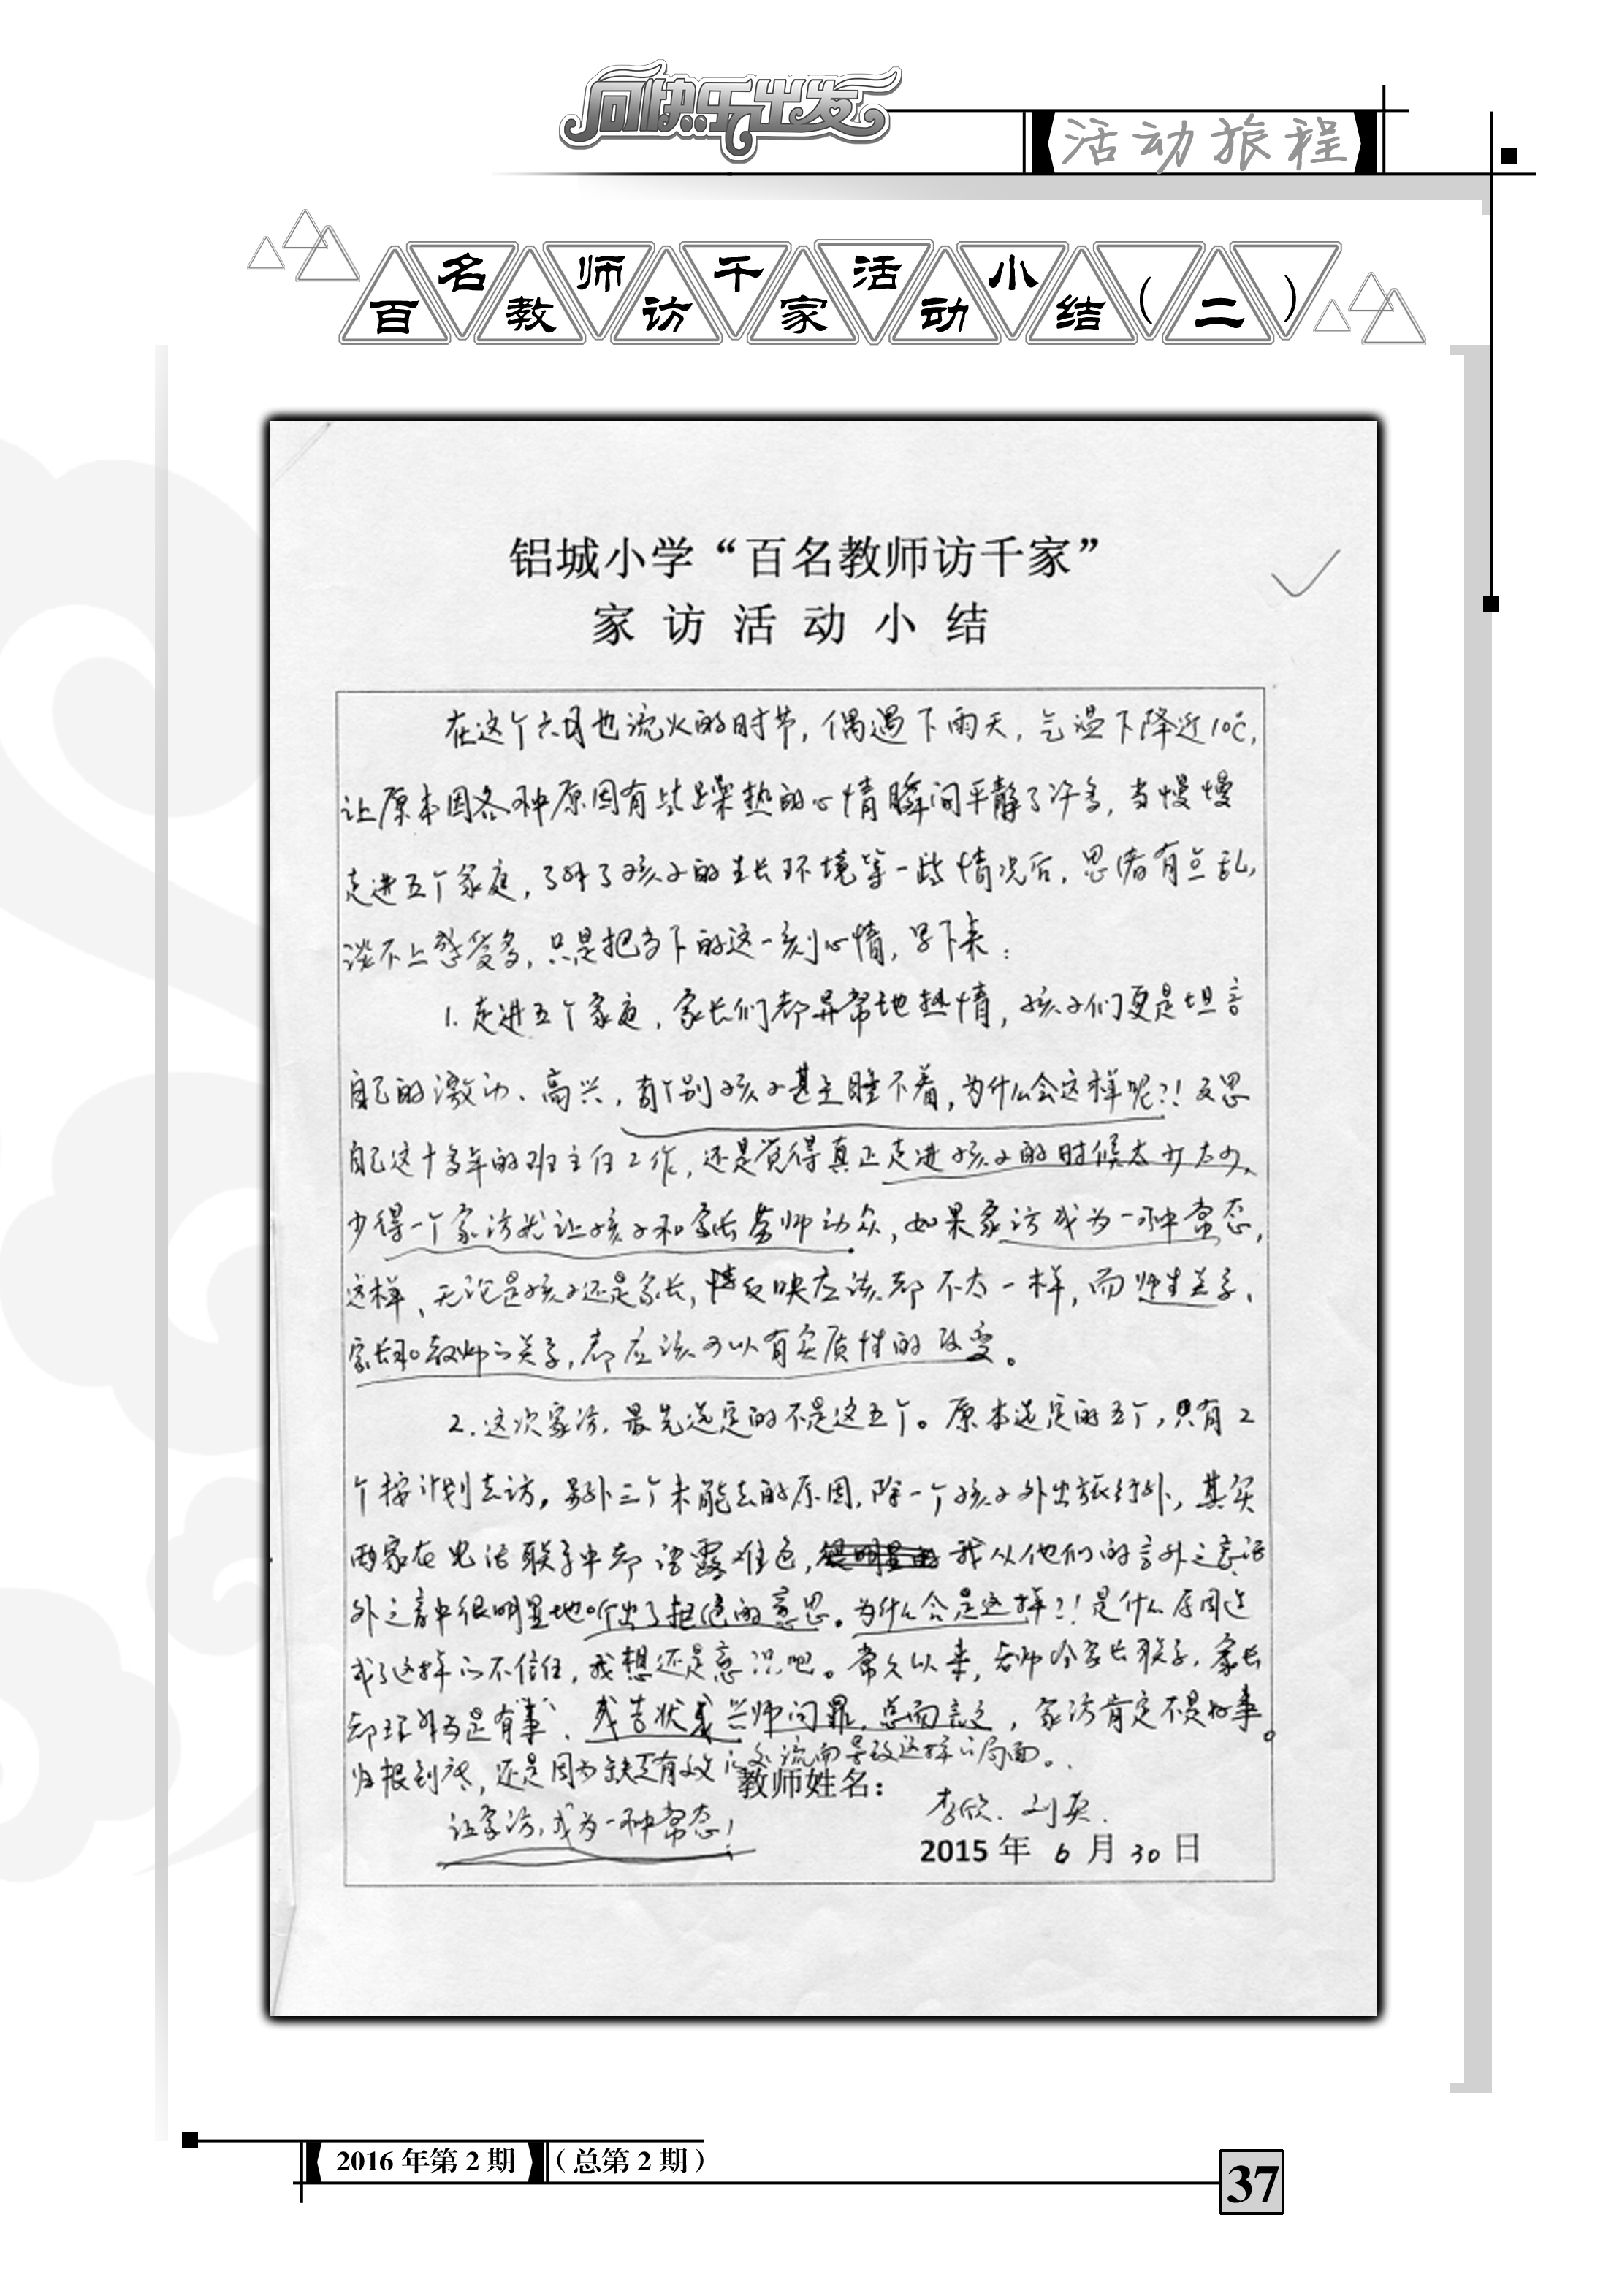 向快乐出发
活动旅程
百名教师访千家活动小结(二)
铝城小学“百名教师访千家”
家访活动小结
在这个六月也流火的时节，偶遇下雨天，气温下降近10℃，
让原本因各种原因有些躁热的心情瞬间平静了许多，当慢慢
走进五个家庭，了解了孩子的生长环境等一些情况后，思绪有点乱，
谈不上感受多，只是把当下的这一刻心情，写下来：
1. 走进五个家庭，家长们都异常地热情，孩子们更是坦言
自己的激动、高兴，有个别孩子甚至睡不着，为什么会这样呢？！反思
自己这十多年的班主任工作，还是觉得真正走进孩子的时候太少太少，
少得一个家访就让孩子和家长劳师动众，如果家访成为一种常态，
这样、无论是孩子还是家长，反映应该都不太一样，而师生关系、
家长和教师的关系，都应该可以有实质性的改变。
2. 这次家访，最先选定的不是这五个。原本选定的五个，只有2
个按计划去访，另外三个未能去的原因，除一个孩子外出旅行外，其实
两家在电话联系中都语露难色，我从他们的言外之意话
外之音中很明显地听出了拒绝的意思。为什么会是这样？！是什么原因造
成了这样的不信任，我想还是意识吧。常久以来，老师给家长联系，家长
都理解为是“有事”、或告状或兴师问罪，总而言之，家访肯定不是好事。
归根到底，还是因为缺乏有效的交流而导致这样的局面。
让家访，成为一种常态！
教师姓名：
李欣、刘英.
2015年6月30日
2016年第2期（总第2期）
37